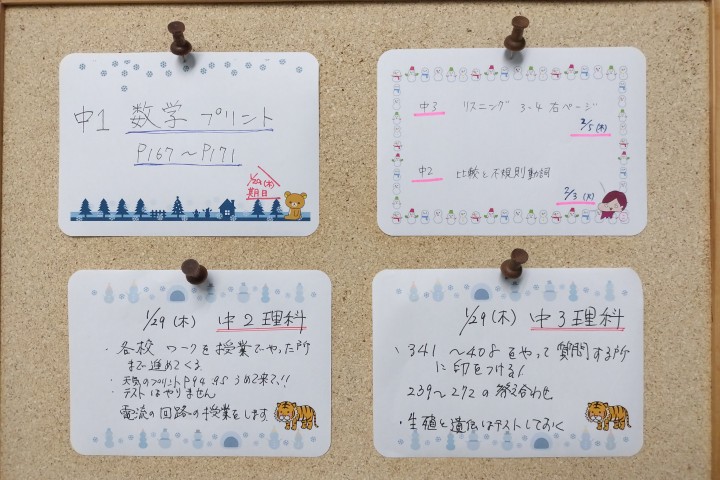 中1 数学 プリント
P167～P171
1/29(木)
期日
中3 リスニング 3-4 右ページ
2/5(木)
中2 比較と不規則動詞
2/3(火)
1/29(木) 中2理科
・各校 ワークを授業でやった所
まで進めてくる
・天気のプリントP94.95 うめて来て!!
・テストはやりません
電流の回路の授業をします
1/29(木) 中3理科
341～408をやって質問する所
に印をつける!
239～272の答え合わせ
・生殖と遺伝はテストしておく